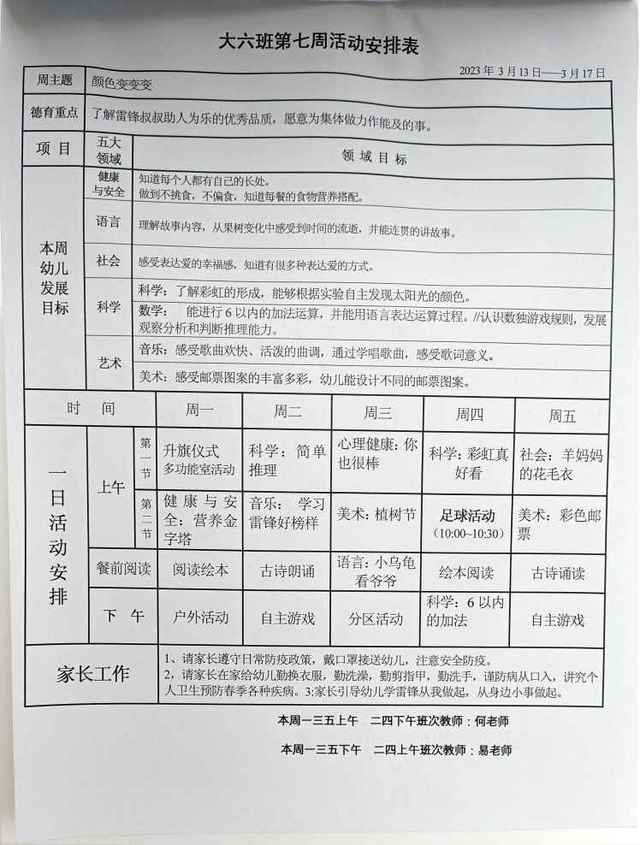 大六班第七周活动安排表
2023 年 3 月 13 日——3 月 17 日
周主题 颜色变变变
德育重点 了解雷锋叔叔助人为乐的优秀品质，愿意为集体做力作能及的事。
项 目 五大领域 领 域 目 标
本周幼儿发展目标
健康与安全 知道每个人都有自己的长处。
做到不挑食，不偏食，知道每餐的食物营养搭配。
语言 理解故事内容，从果树变化中感受到时间的流逝，并能连贯的讲故事。
社会 感受表达爱的幸福感，知道有很多种表达爱的方式。
科学 科学：了解彩虹的形成，能够根据实验自主发现太阳光的颜色。
数学： 能进行 6 以内的加法运算，并能用语言表达运算过程。//认识数独游戏规则，发展
观察分析和判断推理能力。
艺术 音乐：感受歌曲欢快、活泼的曲调，通过学唱歌曲，感受歌词意义。
美术：感受邮票图案的丰富多彩，幼儿能设计不同的邮票图案。
时 间 周一 周二 周三 周四 周五
一日活动安排
上午
第一节 升旗仪式 多功能室活动 科学：简单推理 心理健康：你也很棒 科学：彩虹真好看 社会：羊妈妈的花毛衣
第二节 健康与安全：营养金字塔 音乐： 学习雷锋好榜样 美术：植树节 足球活动 (10:00~10:30) 美术：彩色邮票
餐前阅读 阅读绘本 古诗朗诵 语言：小乌龟看爷爷 绘本阅读 古诗诵读
下 午 户外活动 自主游戏 分区活动 科学：6 以内的加法 自主游戏
家长工作
1、请家长遵守日常防疫政策，戴口罩接送幼儿，注意安全防疫。
2，请家长在家给幼儿勤换衣服，勤洗澡，勤剪指甲，勤洗手，谨防病从口入，讲究个
人卫生预防春季各种疾病。3:家长引导幼儿学雷锋从我做起，从身边小事做起。
本周一三五上午 二四下午班次教师：何老师
本周一三五下午 二四上午班次教师：易老师